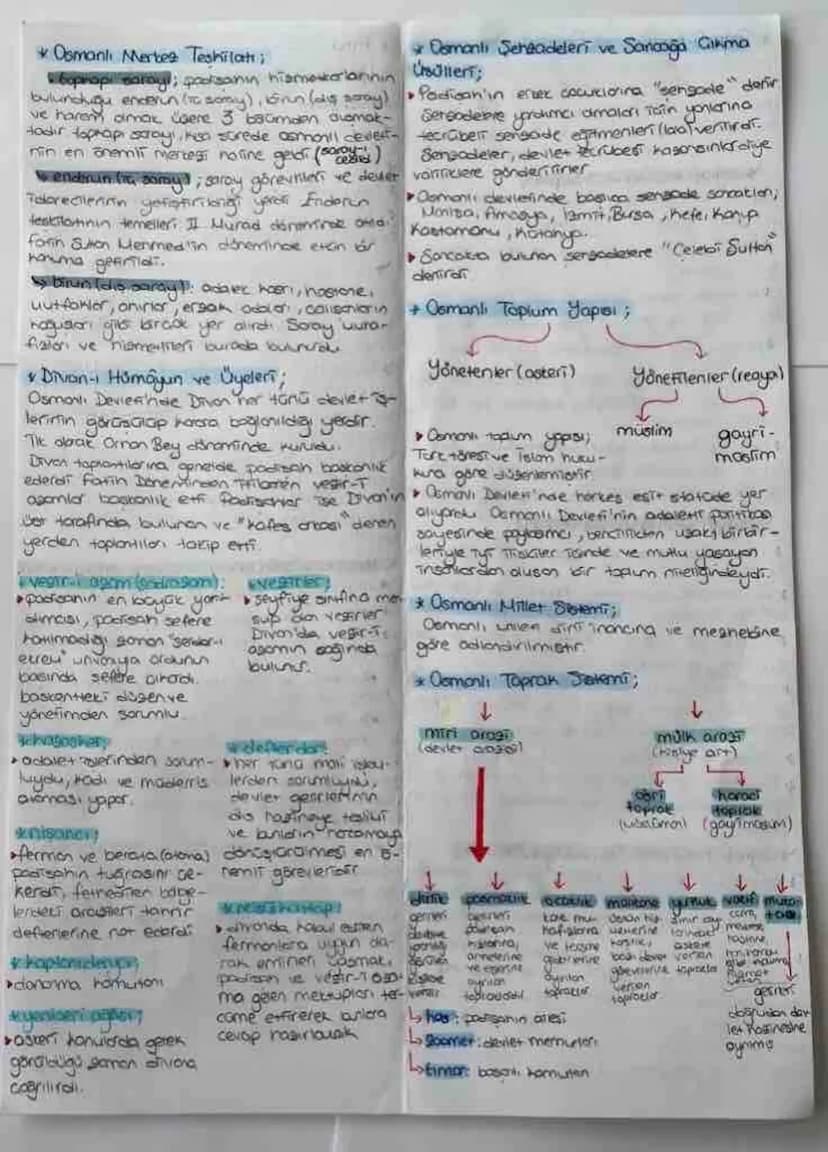 * Osmanlı Merkez Teşkilatı;
Topkapı Sarayı; padişahın hizmetkarlarının
bulunduğu enderun (iç saray), birun (dış saray)
ve harem olmak üzere 3 bölümden oluşmak-
tadır topkapı sarayı, kısa sürede osmanlı devleti-
nin en önemli merkezi haline geldi (saray-ı cedid)
enderun (iç saray); saray görevlileri ve devlet
idarecilerinin yetiştirildiği yerdi Enderun
teşkilatının temelleri II. Murad döneminde
fatih Sultan Mehmed'in döneminde etkin bir
konuma getirildi.
birun (dış saray): adalet kasrı, hastane,
mutfaklar, ahırlar, erzak odaları, çalışanların
koğuşları gibi birçok yer alırdı. Saray
ve hizmetlileri burada bulunurdu
* Divan-ı Hümayun ve Üyeleri;
Osmanlı Devleti'nde Divan her türlü devlet iş-
lerinin görüşülüp karara bağlanıldığı yerdir.
İlk olarak Orhan Bey döneminde kuruldu.
Divan toplantılarına genelde padişah başkanlık
ederdi Fatih Döneminden itibaren vezir-i
azamlar başkanlık etti. Padişahlar ise Divan'ın
üst tarafında bulunan ve "kafes arkası" denen
yerden toplantıları takip etti.
vezir-i azam (sadrazam):
▸ padişahın en büyük yar-
dımcısı, padişah sefere
katılmadığı zaman "serdar-ı
ekrem" unvanıyla ordunun
başında sefere çıkardı.
başkentteki düzen ve
yönetimden sorumlu.
vezirler;
▸ seyfiye sınıfına men
sup olan vezirler
Divan'da vezir-i
azamın sağında
bulunur.
kazasker;
▸ adalet işlerinden sorum-
luydu, kadı ve müderris
ataması yapar.
defterdar:
▸ her türlü mali işley-
lerden sorumluydu,
devlet gelirlerinin
dış hazineye teslimi
ve bunların harcamaya
dönüştürülmesi en ö-
nemli görevleridir
nişancı;
▸ ferman ve berata (atama)
padişahın tuğrasını çe-
kerdi, fethedilen bölge-
lerdeki arazileri tahrir
defterlerine not ederdi
reisülküttap;
▸ divanda kabul edilen
fermanlara uygun ola-
rak emirleri yazmak,
padişah ve vezir-i aza-
ma gelen mektupları ter-
cüme ettirerek onlara
cevap hazırlamak
kaptanıderya;
▸ donanma komutanı
yeniçeri ağası;
▸ askeri konularda gerek
görüldüğü zaman divana
çağrılırdı.
* Osmanlı Şehzadeleri ve Sancağa Çıkma
Usülleri;
▸ Padişah'ın erkek çocuklarına "şehzade" denir
Şehzadelere yardımcı olmaları için yanlarına
tecrübeli şehzade eğitmenleri (lala) verilirdi.
Şehzadeler, devlet tecrübesi kazansınlar diye
valiliklere gönderilirler
▸ Osmanlı devletinde başlıca şehzade sancakları;
Manisa, Amasya, İzmit, Bursa, Kefe, Konya
Kastamonu, Kütahya.
▸ Sancakta bulunan şehzadelere "Çelebi Sultan"
denirdi
* Osmanlı Toplum Yapısı;
Yönetenler (askeri)
Yönetilenler (reaya)
müslim
gayri-
müslim
▸ Osmanlı toplum yapısı;
Türk töresi ve İslam huku-
kuna göre düzenlenmiştir.
▸ Osmanlı Devleti'nde herkes eşit statüde yer
alıyordu Osmanlı Devleti'nin adaletli politikası
sayesinde paylaşımcı, bencillikten uzak, birbir-
leriyle iyi ilişkiler içinde ve mutlu yaşayan
insanlardan oluşan bir toplum niteliğindeydi.
* Osmanlı Millet Sistemi;
Osmanlı, dini inancına ve mezhebine
göre adlandırılmıştır.
* Osmanlı Toprak Sistemi;
miri arazi
(devlet arazisi)
mülk arazi
(kişiye ait)
öşri
toprak
(müslüman)
haraci
toprak
(gayrimüslim)
dirlik
paşmaklık
ocaklık
malikane
yurtluk
vakıf
muka-
taa
geliri
padişah
kızlarına,
annelerine
ve eşlerine
ayrılan
topraklardı
kale mu-
hafızlarına
ve tersane
giderlerine
ayrılan
topraklar
üstün hiz-
metlerine
karşılık,
bazı devlet
görevlilerine
verilen
topraklar
sınır
askere
verilen
topraklar
cami,
medrese
geliri
doğrudan dev
let hazinesine
ayrılmış
has: padişahın ailesi
zeamet: devlet memurları
tımar: başarılı komutan